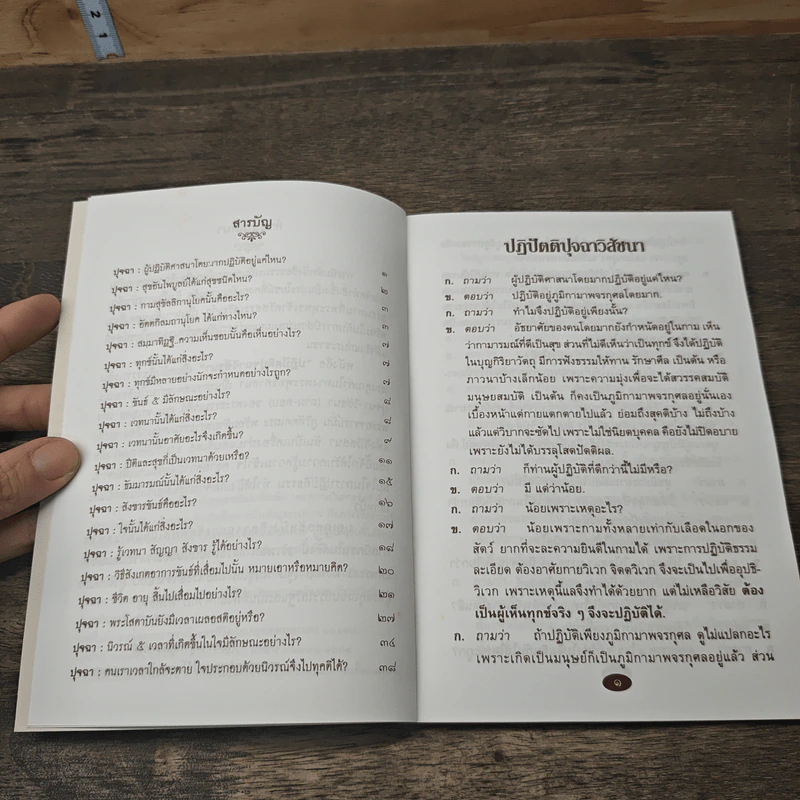 2 1
สารบัญ
ปุจฉา : ผู้ปฏิบัติศาสนาโดยมากปฏิบัติอยู่แค่ไหน? ๑
ปุจฉา : สุขอันไพบูลย์ได้แก่สุขชนิดไหน? ๒
ปุจฉา : กามสุขัลลิกานุโยคนั้นคืออะไร? ๓
ปุจฉา : อัตตกิลมถานุโยค ได้แก่ทางไหน? ๓
ปุจฉา : สมมาทิฏฐิ..ความเห็นชอบนั้นคือเห็นอย่างไร? ๗
ปุจฉา : ทุกข์นั้นได้แก่สิ่งอะไร? ๗
ปุจฉา : ทุกข์มีหลายอย่างนักจะกำหนดอย่างไรถูก? ๗
ปุจฉา : ขันธ์ ๕ มีลักษณะอย่างไร? ๘
ปุจฉา : เวทนานั้นได้แก่สิ่งอะไร? ๘
ปุจฉา : เวทนานั้นอาศัยอะไรจึงเกิดขึ้น? ๙
ปุจฉา : ปีติและสุขก็เป็นเวทนาด้วยเหรือ? ๑๑
ปุจฉา : ธัมมารมณ์นั้นได้แก่สิ่งอะไร? ๑๕
ปุจฉา : สังขารขันธ์คืออะไร? ๑๖
ปุจฉา : ใจนั้นได้แก่สิ่งอะไร? ๑๗
ปุจฉา : รู้เวทนา สัญญา สังขาร รู้ได้อย่างไร? ๑๘
ปุจฉา : วิธีสังเกตอาการขันธ์ที่เสื่อมไปนั้น หมายเอาหรือหมายคิด? ๒๐
ปุจฉา : ชีวิต อายุ สิ้นไปเสื่อมไปอย่างไร? ๒๑
ปุจฉา : พระโสดาบันยังมีเวลาเผลอสติอยู่หรือ? ๒๗
ปุจฉา : นิวรณ์ ๕ เวลาที่เกิดขึ้นในใจมีลักษณะอย่างไร? ๓๔
ปุจฉา : คนเราเวลาใกล้จะตาย ใจประกอบด้วยนิวรณ์จึงไปทุคติได้? ๓๘
ปฏิปัตติปุจฉาวิสัชนา
ก. ถามว่า ผู้ปฏิบัติศาสนาโดยมากปฏิบัติอยู่แค่ไหน?
ข. ตอบว่า ปฏิบัติอยู่ภูมิกามาพจรกุศลโดยมาก.
ก. ถามว่า ทำไมจึงปฏิบัติอยู่เพียงนั้น?
ข. ตอบว่า อัธยาศัยของคนโดยมากยังกำหนัดอยู่ในกาม เห็น
ว่ากามารมณ์ที่ดีเป็นสุข ส่วนที่ไม่ดีเห็นว่าเป็นทุกข์ จึงได้ปฏิบัติ
ในบุญกิริยาวัตถุ มีการฟังธรรมให้ทาน รักษาศีล เป็นต้น หรือ
ภาวนาบ้างเล็กน้อย เพราะความมุ่งเพื่อจะได้สวรรคสมบัติ
มนุษยสมบัติ เป็นต้น ก็คงเป็นภูมิกามาพจรกุศลอยู่นั่นเอง
เบื้องหน้าแต่กายแตกตายไปแล้ว ย่อมถึงสุคติบ้าง ไม่ถึงบ้าง
แล้วแต่วิบากจะซัดไป เพราะไม่ใช่นิยตบุคคล คือยังไม่ปิดอบาย
เพราะยังไม่ได้บรรลุโสดปัตติผล.
ก. ถามว่า ก็ท่านผู้ปฏิบัติที่ดีกว่านี้ไม่มีหรือ?
ข. ตอบว่า มี แต่ว่าน้อย.
ก. ถามว่า น้อยเพราะเหตุอะไร?
ข. ตอบว่า น้อยเพราะกามทั้งหลายเท่ากับเลือดในอกของ
สัตว์ ยากที่จะละความยินดีในกามได้ เพราะการปฏิบัติธรรม
ละเอียด ต้องอาศัยกายวิเวก จิตตวิเวก จึงจะเป็นไปเพื่ออุปธิ-
วิเวก เพราะเหตุนี้แลจึงทำได้ด้วยยาก แต่ไม่เหลือวิสัย ต้อง
เป็นผู้เห็นทุกข์จริง ๆ จึงจะปฏิบัติได้.
ก. ถามว่า ถ้าปฏิบัติเพียงภูมิกามาพจรกุศล ดูไม่แปลกอะไร
เพราะเกิดเป็นมนุษย์ก็เป็นภูมิกามาพจรกุศลอยู่แล้ว ส่วน
๑